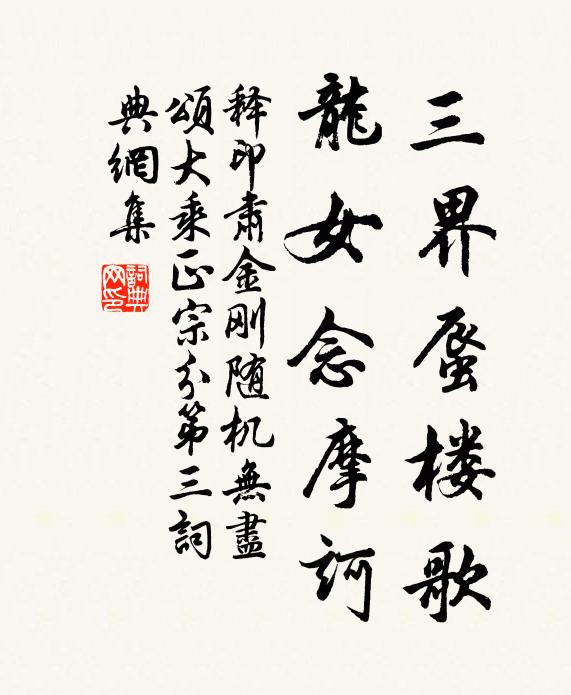 三界蜃楼歌
龍女念摩訶
释印肃金刚随机無盡
頌大乘正宗分第三詞
典網集
詞典网印